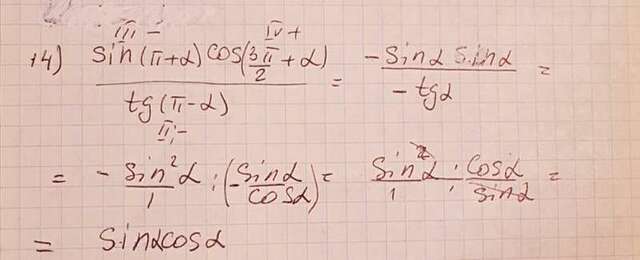 III - IV +
14) sin(π+α)cos(3π/2+α) / tg(π-α) = -sinα sinα / -tgα =
II; -
= - sin²α/1 : (-sinα/cosα) = sin²α/1 · cosα/sinα =
= sinαcosα